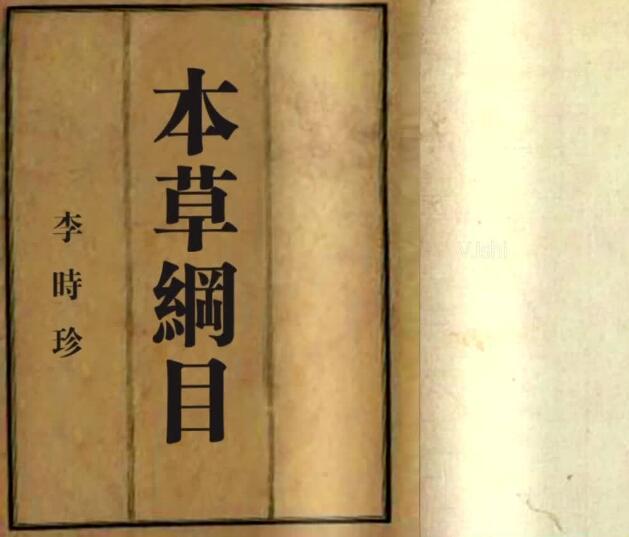 本草綱目
李時珍